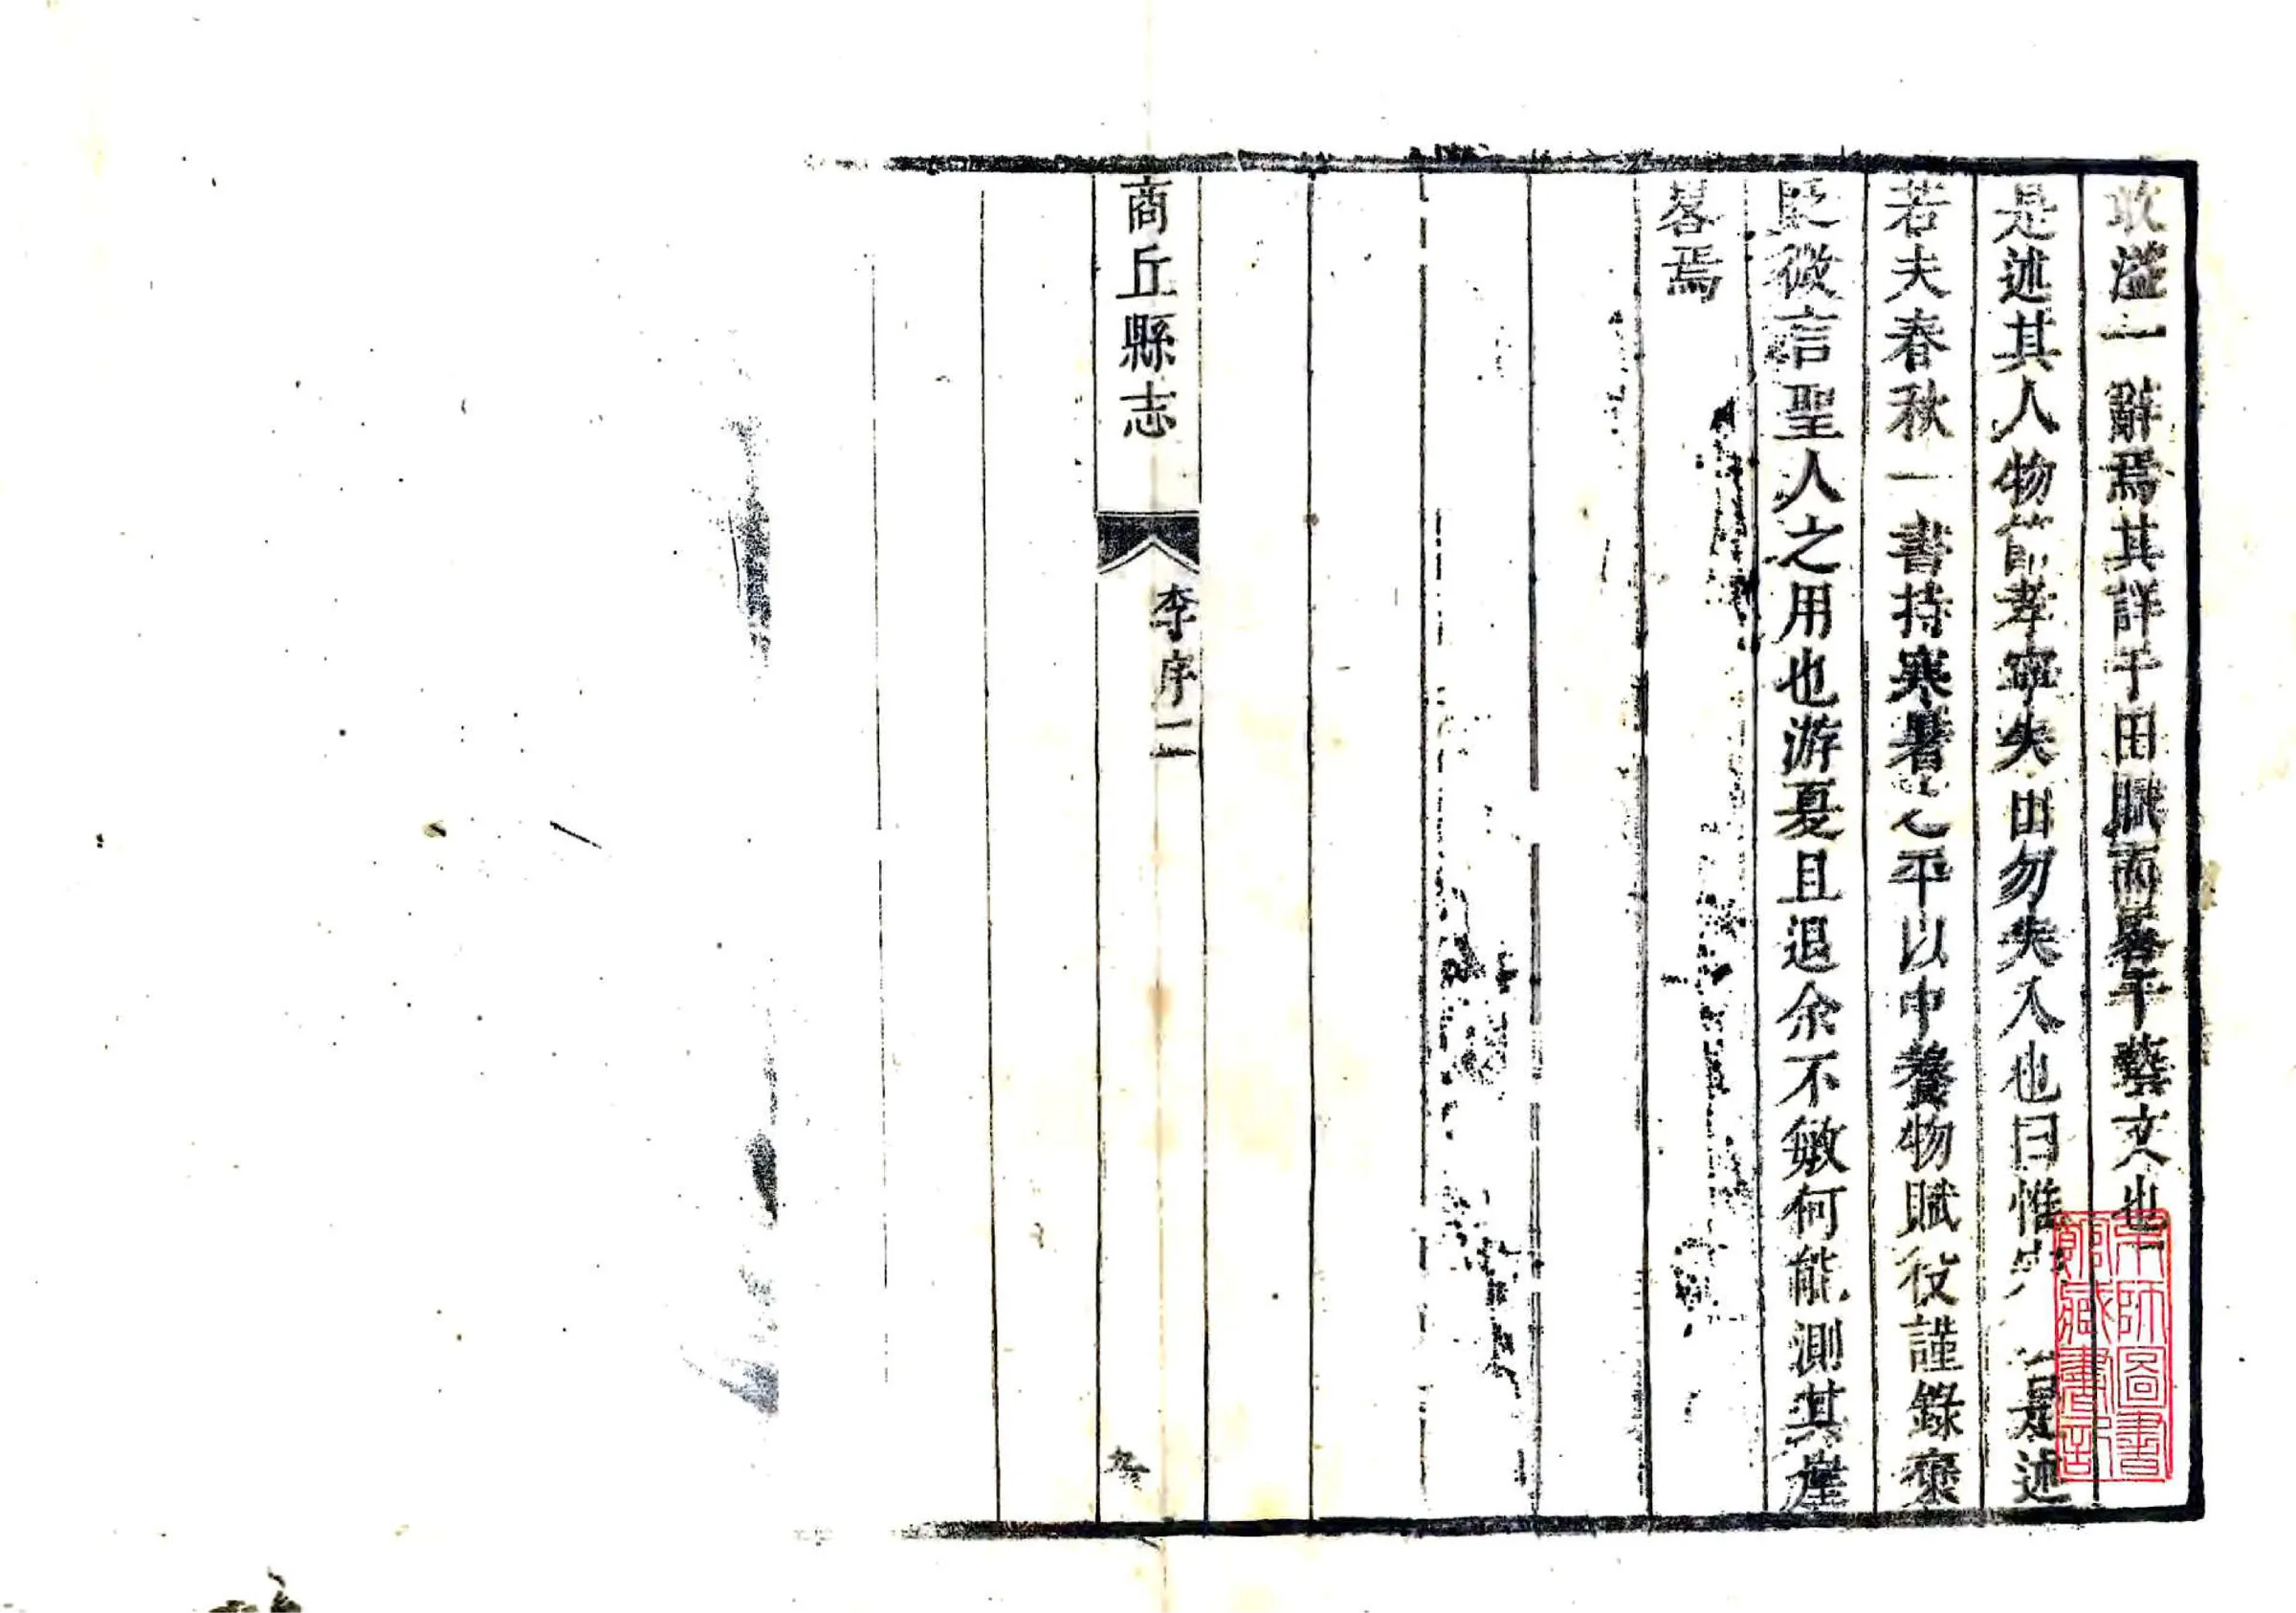 敢溢一辭焉其詳于田賦而畧于藝文也
是述其人物節孝寧失出勿失入也曰惟 是述
若夫春秋一書持寒暑之平以中養物賦役謹錄褒
貶微言聖人之用也游夏且退余不敏何能測其崖
畧焉
商丘縣志
李序二
東師圖書
館藏書印